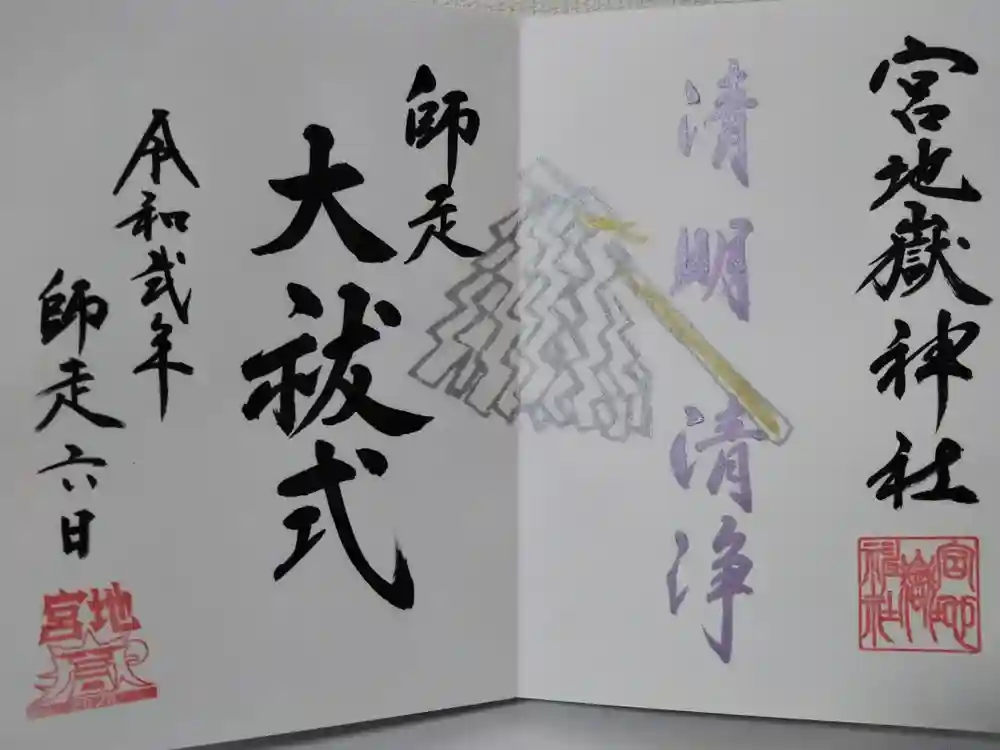 宮地嶽神社
宮地嶽神社
清明清浄
師走
大祓式
令和弐年
師走六日
宮地嶽